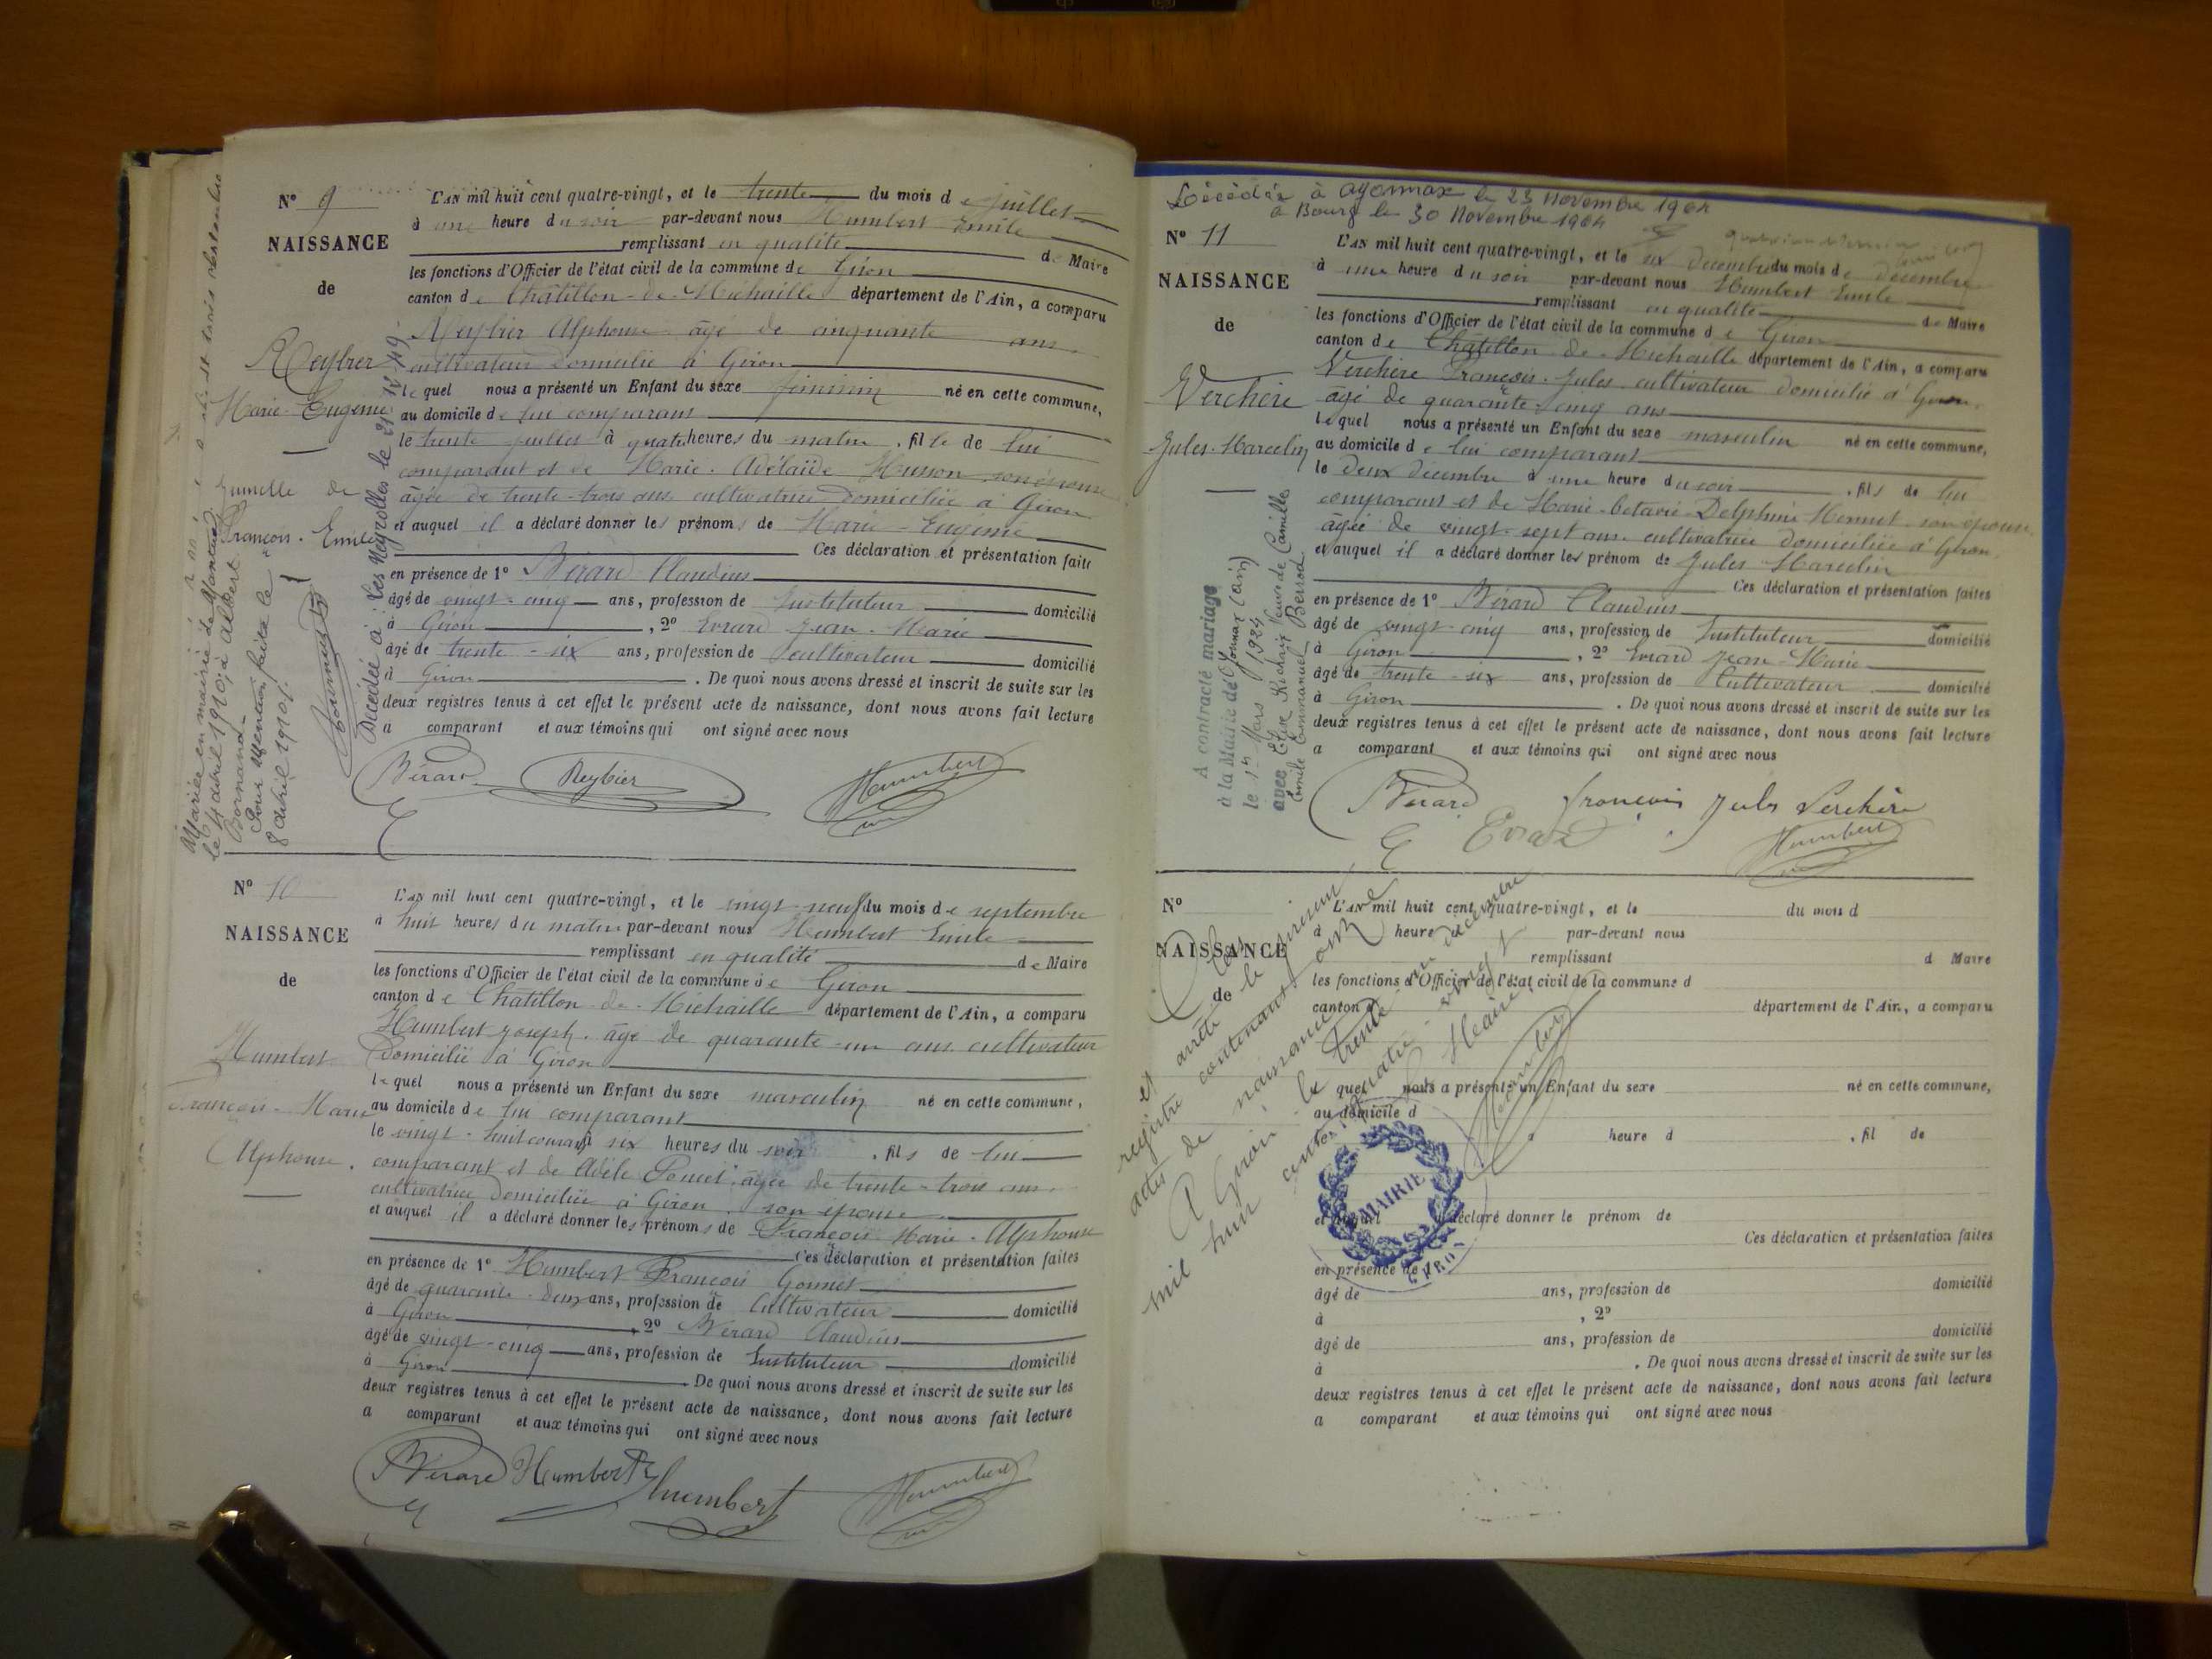 N° 9
NAISSANCE
de
Reybier
Marie-Eugénie
Jumelle de
François-Emile
Mariée en mairie de Nantua
le 4 avril 1910, à Albert
Bornand
Pour mention faite le
8 avril 1910
Décédée à Les Neyrolles le 21
L'AN mil huit cent quatre-vingt, et le trente du mois de juillet
à une heure du soir par-devant nous Humbert Emile
remplissant en qualité de Maire
les fonctions d'Officier de l'état civil de la commune de Giron
canton de Châtillon-de-Michaille département de l'Ain, a comparu
Reybier Alphonse âgé de cinquante ans
cultivateur domicilié à Giron
lequel nous a présenté un Enfant du sexe féminin né en cette commune,
au domicile de lui comparant
le trente juillet à quatre heures du matin, fille de lui
comparant et de Marie-Adélaïde Husson son épouse
âgée de trente-trois ans cultivatrice domiciliée à Giron
et auquel il a déclaré donner les prénoms de Marie-Eugénie
Ces déclaration et présentation faite
en présence de 1° Bérard Claudius
âgé de vingt-cinq ans, profession de Instituteur domicilié
à Giron, 2° Evrard Jean-Marie
âgé de trente-six ans, profession de cultivateur domicilié
à Giron. De quoi nous avons dressé et inscrit de suite sur les
deux registres tenus à cet effet le présent acte de naissance, dont nous avons fait lecture
a comparant et aux témoins qui ont signé avec nous
Bérard Reybier Humbert
N° 10
NAISSANCE
de
Humbert
François-Marie
Alphonse.
L'AN mil huit cent quatre-vingt, et le vingt-neuf du mois de septembre
à huit heures du matin par-devant nous Humbert Emile
remplissant en qualité de Maire
les fonctions d'Officier de l'état civil de la commune de Giron
canton de Châtillon-de-Michaille département de l'Ain, a comparu
Humbert Joseph. âgé de quarante-un ans cultivateur
domicilié à Giron
lequel nous a présenté un Enfant du sexe masculin né en cette commune,
au domicile de lui comparant
le vingt-huit courant à six heures du soir, fils de lui
comparant et de Adèle Poncet âgée de trente-trois ans.
cultivatrice domiciliée à Giron, son épouse
et auquel il a déclaré donner les prénoms de François-Marie-Alphonse
Ces déclaration et présentation faites
en présence de 1° Humbert François Gonnet
âgé de quarante-deux ans, profession de Cultivateur domicilié
à Giron, 2° Bérard Claudius
âgé de vingt-cinq ans, profession de Instituteur domicilié
à Giron De quoi nous avons dressé et inscrit de suite sur les
deux registres tenus à cet effet le présent acte de naissance, dont nous avons fait lecture
a comparant et aux témoins qui ont signé avec nous
Bérard Humbert humbert Humbert
Décédé à Oyonnax le 23 Novembre 1964
à Bourg le 30 Novembre 1964
N° 11
NAISSANCE
de
Verchère
Jules-Marcelin
A contracté mariage
à la Mairie de Oyonnax (Ain)
le 1er Mars 1924
avec
L'AN mil huit cent quatre-vingt, et le six décembre du mois de décembre
à une heure du soir par-devant nous Humbert Emile
remplissant en qualité de Maire
les fonctions d'Officier de l'état civil de la commune de Giron
canton de Châtillon-de-Michaille département de l'Ain, a comparu
Verchère François-Jules cultivateur domicilié à Giron.
âgé de quarante-cinq ans
lequel nous a présenté un Enfant du sexe masculin né en cette commune,
au domicile de lui comparant
le deux décembre à une heure du soir, fils de lui
comparant et de Marie Delphine son épouse
âgée de vingt-sept ans cultivatrice domiciliée à Giron.
et auquel il a déclaré donner les prénom de Jules-Marcelin
Ces déclaration et présentation faites
en présence de 1° Bérard Claudius
âgé de vingt-cinq ans, profession de Instituteur domicilié
à Giron, 2° Evrard Jean-Marie
âgé de trente-six ans, profession de Cultivateur domicilié
à Giron. De quoi nous avons dressé et inscrit de suite sur les
deux registres tenus à cet effet le présent acte de naissance, dont nous avons fait lecture
a comparant et aux témoins qui ont signé avec nous
Bérard françois jules Verchère
Evrard Humbert
N°
NAISSANCE
de
L'AN mil huit cent quatre-vingt, et le du mois d
à heure par-devant nous
remplissant d Maire
les fonctions d'Officier de l'état civil de la commune d
canton d département de l'Ain, a comparu
quel nous a présenté un Enfant du sexe né en cette commune,
au domicile d
heure d, fil de
et auquel déclaré donner le prénom de
Ces déclaration et présentation faites
en présence de 1°
âgé de ans, profession de domicilié
à, 2°
âgé de ans, profession de domicilié
à. De quoi nous avons dressé et inscrit de suite sur les
deux registres tenus à cet effet le présent acte de naissance, dont nous avons fait lecture
a comparant et aux témoins qui ont signé avec nous
Clos
et arrêté le présent
registre contenant onze
actes de naissance
A Giron le trente un décembre
mil huit cent quatre-vingt
Le Maire,
Humbert
MAIRIE
GIRON